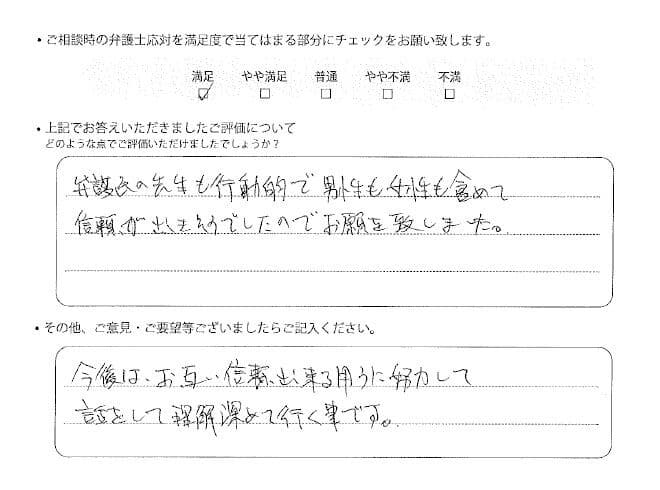 ・ご相談時の弁護士応対を満足度で当てはまる部分にチェックをお願い致します。
満足 やや満足 普通 やや不満 不満
・上記でお答えいただきましたご評価について
どのような点でご評価いただけましたでしょうか？
弁護氏の先生も行動的で男性も女性も含めて
信頼が出来そうでしたのでお願を致しました。
・その他、ご意見・ご要望等ございましたらご記入ください。
今後は、お互い信頼出来る用うに努力して
話をして理解深めて行く事です。